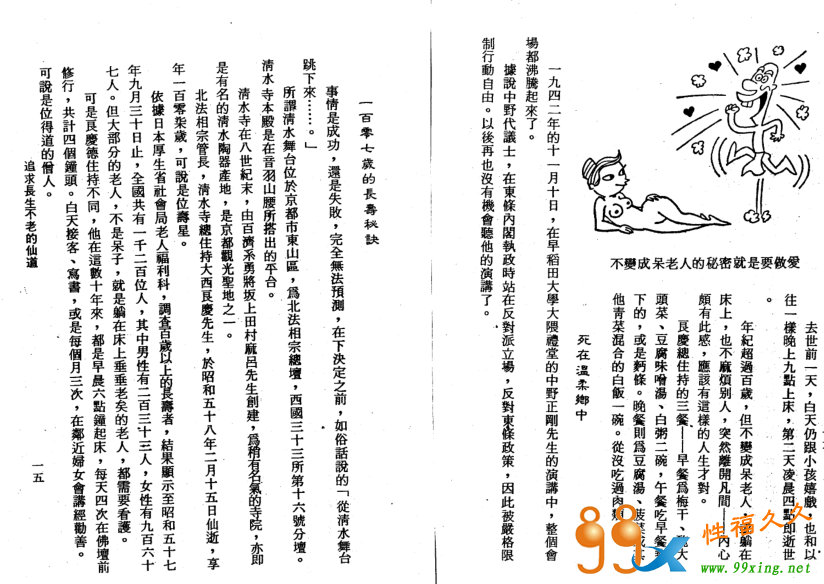 不變成呆老人的秘密就是要做愛
去世前一天，白天仍跟小孩嬉戲，也和以
往一樣晚上九點上床，第二天凌晨四點即逝世
。
年紀超過百歲，但不變成呆老人，躺在
床上，也不麻煩別人，突然離開凡間——內心
頗有此感，應該有這樣的人生才對。
良慶總住持的三餐——早餐爲梅干、大
頭菜、豆腐味噌湯、白粥二碗，午餐吃早餐
下的，或是麪條。晚餐則爲豆腐湯、菠
他青菜混合的白飯一碗。從沒吃過肉
死在溫柔鄉中
一九四二年的十一月十日，在早稻田大學大隈禮堂的中野正剛先生的演講中，整個會
場都沸騰起來了。
據說中野代議士，在東條內閣執政時站在反對派立場，反對東條政策，因此被嚴格限
制行動自由。以後再也沒有機會聽他的演講了。
一百零七歲的長壽秘訣
事情是成功，還是失敗，完全無法預測，在下決定之前，如俗話說的「從清水舞台
跳下來……。」
所謂清水舞台位於京都市東山區，爲北法相宗總壇，西國三十三所第十六號分壇。
清水寺本殿是在音羽山腰所搭出的平台。
清水寺在八世紀末，由百濟系勇將坂上田村麻呂先生創建，爲稍有名氣的寺院，亦即
是有名的清水陶器產地，是京都觀光聖地之一。
北法相宗管長，清水寺總住持大西良慶先生，於昭和五十八年二月十五日仙逝，享
年一百零柒歲，可說是位壽星。
依據日本厚生省社會局老人福利科，調查百歲以上的長壽者，結果顯示至昭和五十七
年九月三十日止，全國共有一千二百位人，其中男性有二百三十三人，女性有九百六十
七人。但大部分的老人，不是呆子，就是躺在床上垂垂老矣的老人，都需要看護。
可是良慶德住持不同，他在這數十年來，都是早晨六點鐘起床，每天四次在佛壇前
修行，共計四個鐘頭。白天接客、寫書，或是每個月三次，在鄰近婦女會講經勸善。
可說是位得道的僧人。
追求長生不老的仙道
一五
性福久久
99x
www.99xing.net